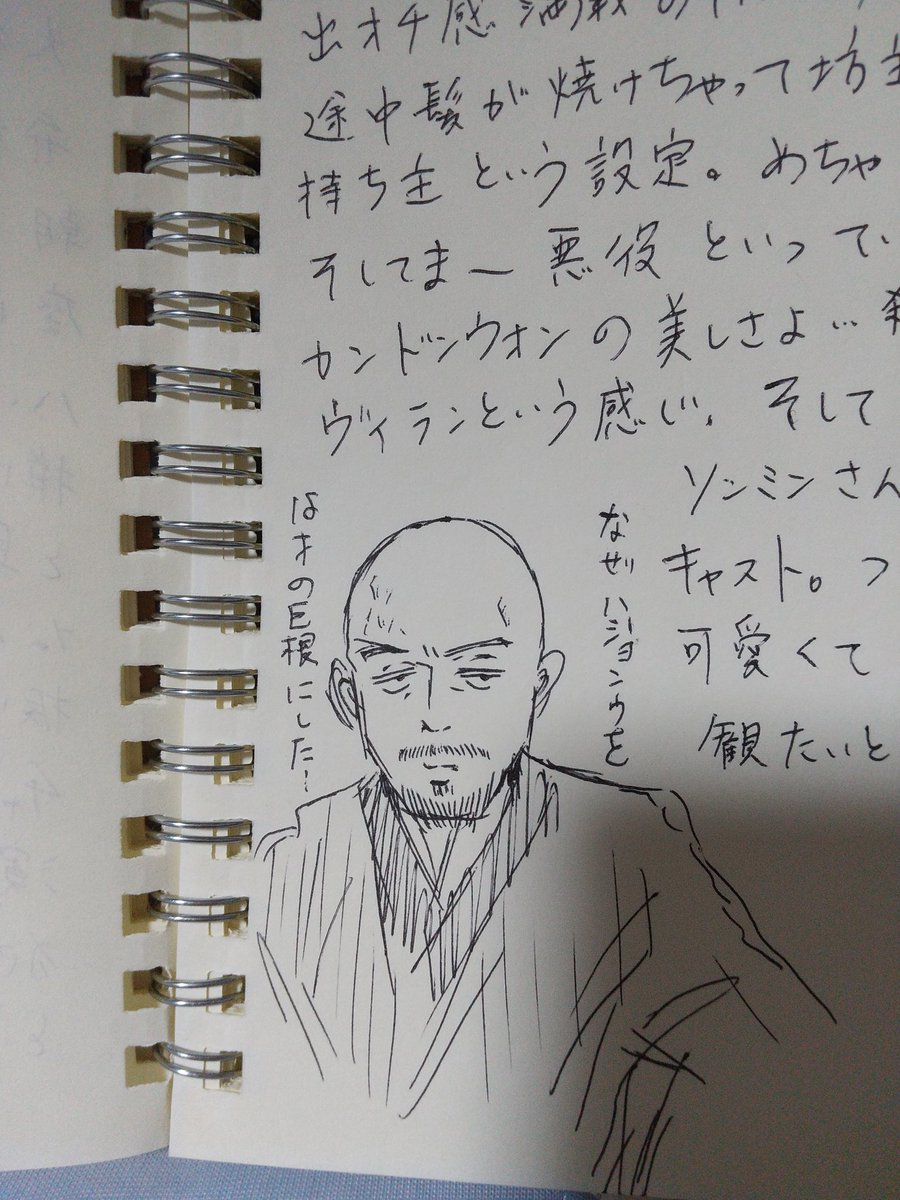 出オチ感満載の
途中髪が焼けちゃって坊主
持ち主という設定。めちゃ
そしてまー悪役といって
カンドンウォンの美しさよ…
ヴィランという感じ。そして
ソンミンさん
キャスト。つ
可愛くて
観たいと
なぜハジョンウを
はオの巨根にした!